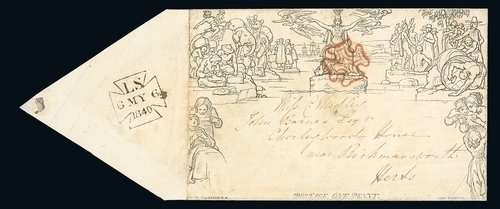 LS
6 MY 6
1840
John Barnes Esqr
Chorleywoods House
near Rickmansworth
Herts
POSTAGE ONE PENNY.